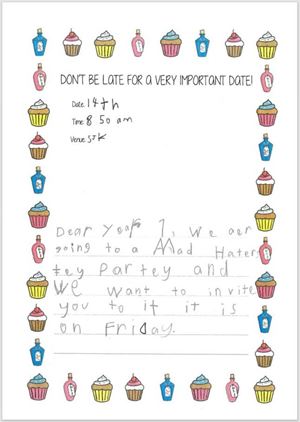 DON'T BE LATE FOR A VERY IMPORTANT DATE!
Date 14th
Time 8 50 am
Venue SJK
Dear Year 1, We aer
going to a Mad Haters
tey Partey and
We want to invite
you to it it is
on Friday.